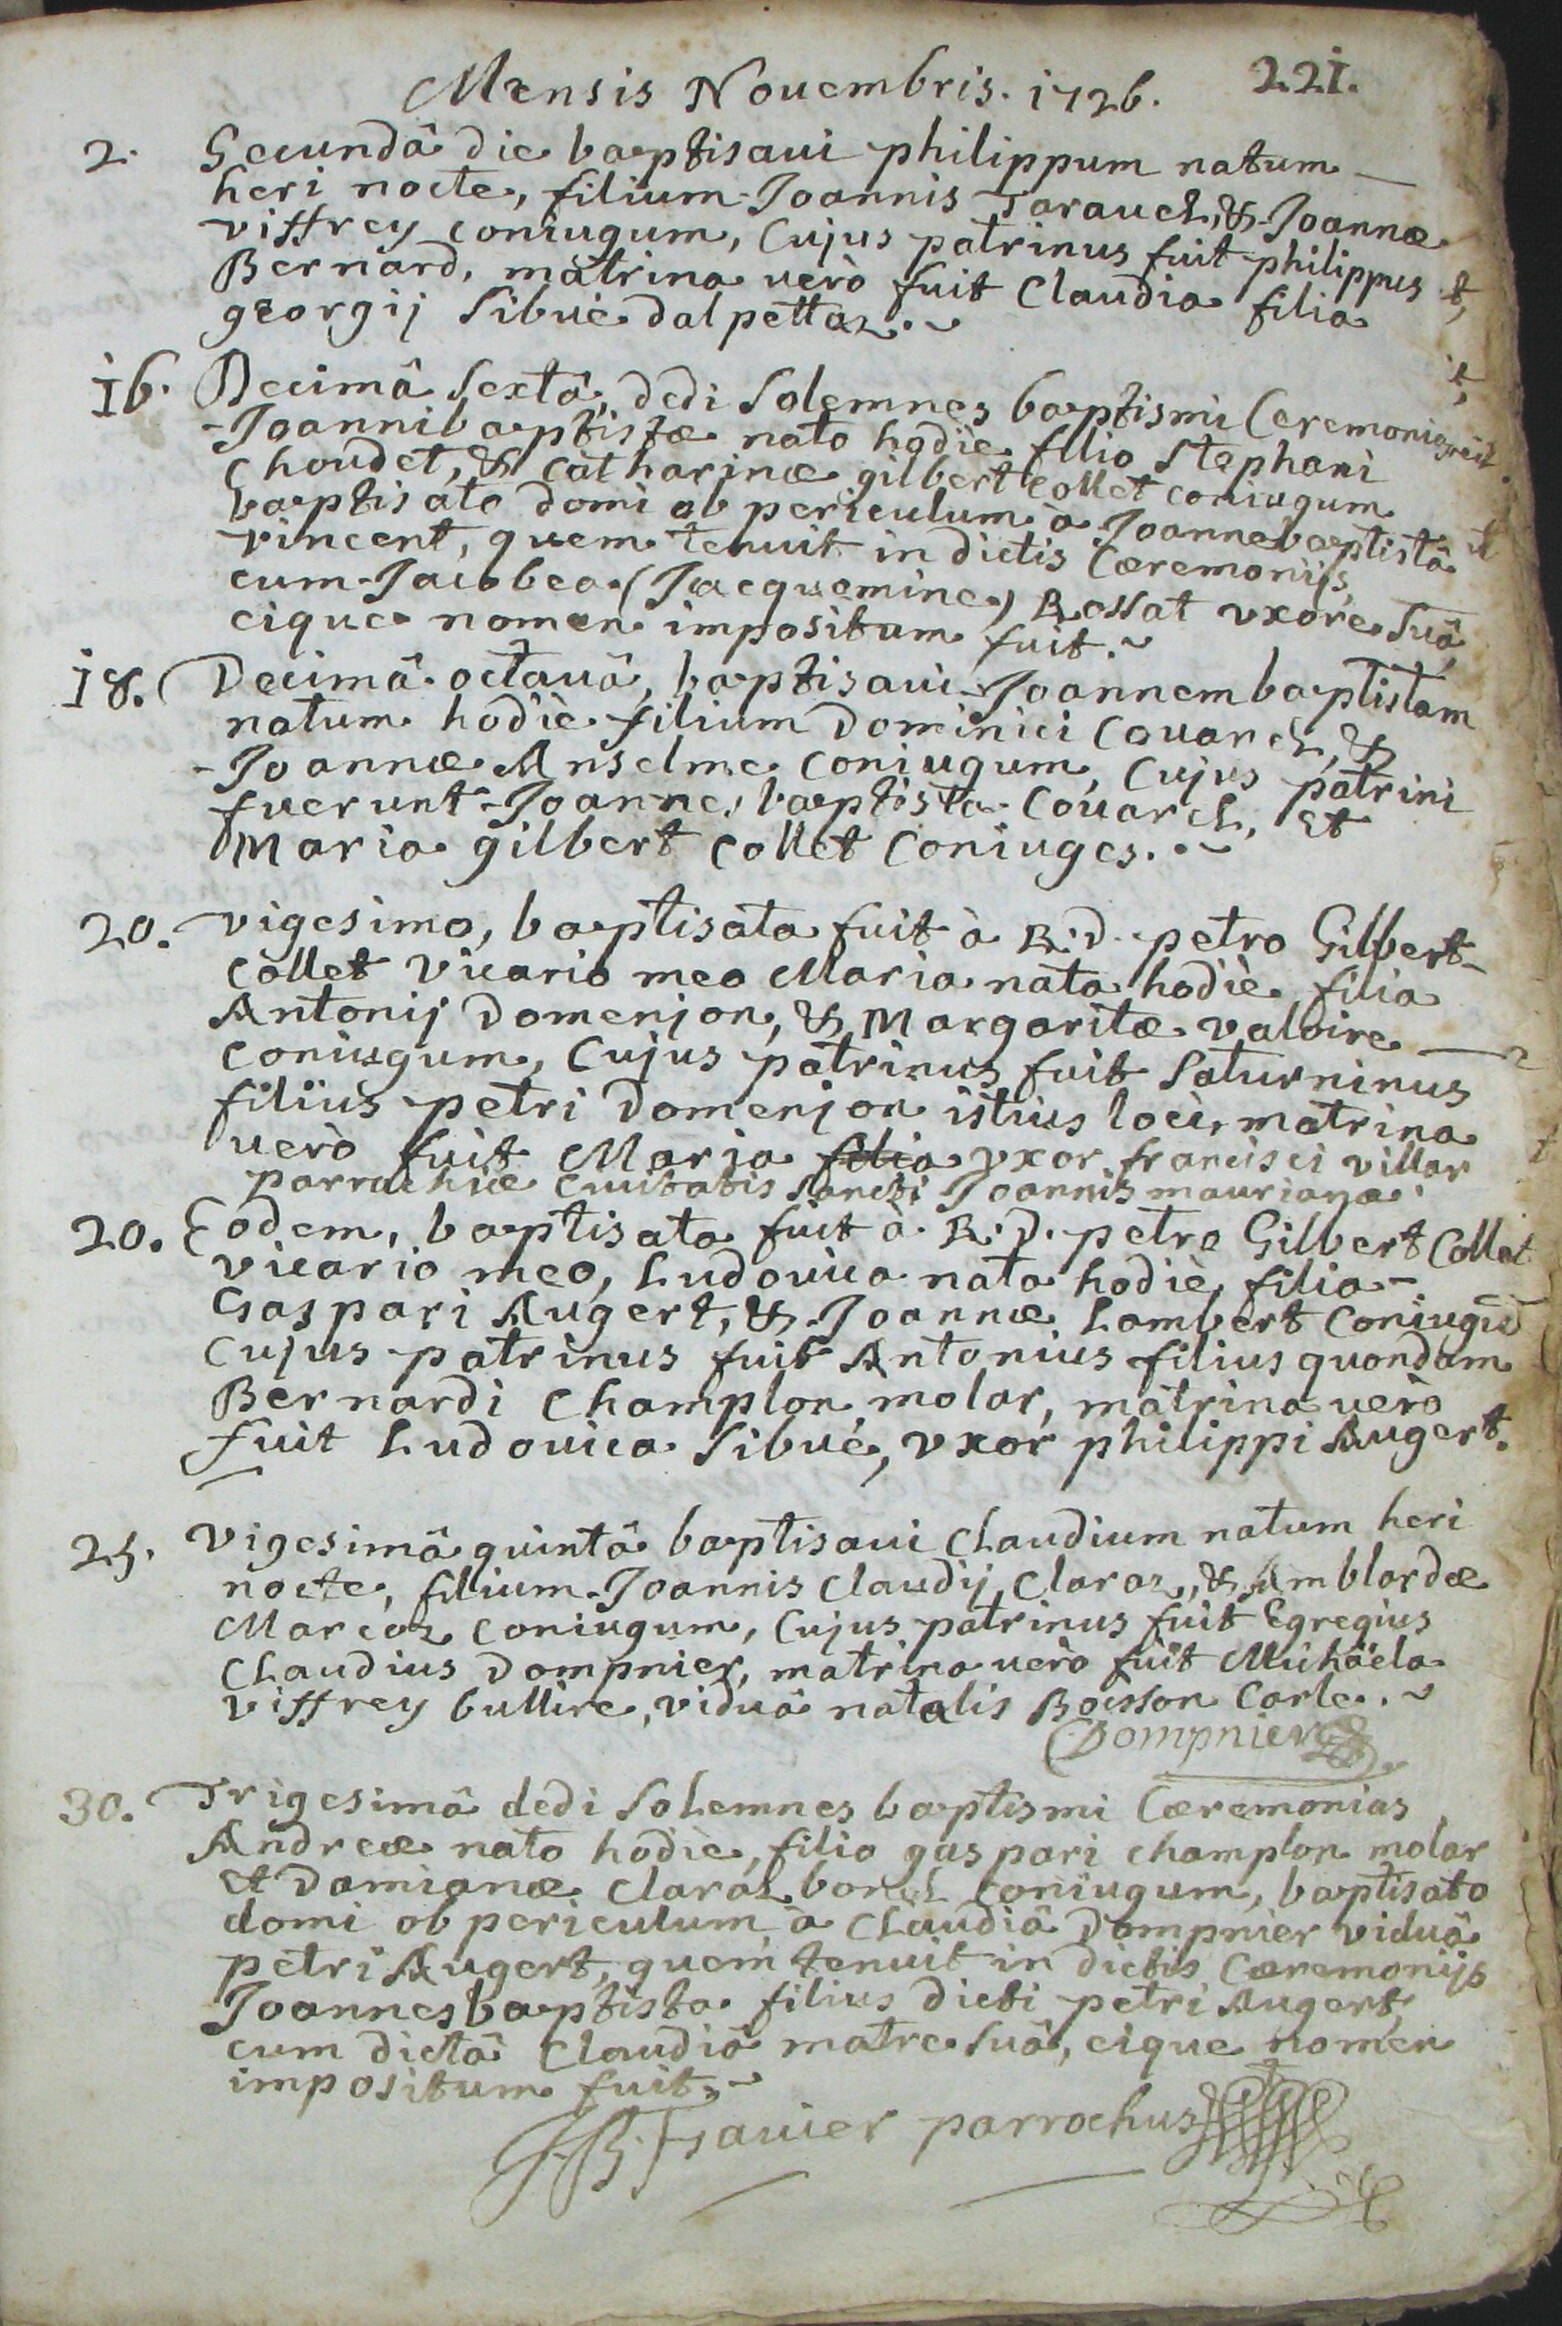 Mensis Nouembris. 1726. 221.
2. Secundâ die baptisaui philippum natum
heri nocte, filium Joannis Tarauel, & Joannæ
viffrey coniugum, Cujus patrinus fuit philippus
Bernard, matrina uerò fuit Claudia filia
georgij Sibué dalpettaz.
16. Decimâ Sextâ, dedi Solemnes baptismi Ceremonias
Joannibaptistæ nato hodiè filio Stephani
Choudet, & Catharinæ gilbert Collet coniugum
baptisato domi ob periculum à Joannebaptistâ
vincent, quem tenuit in dictis Cæremonijs
cum Jacobea (Jacquemine) Rossat vxore Suâ,
eique nomen impositum fuit.
18. Decimâ octauâ, baptisaui Joannembaptistam
natum hodiè filium Dominici Couarel, &
Joannæ Anselme Coniugum, Cujus patrini
fuerunt Joannes baptista Couarel, Et
Maria gilbert Collet Coniuges.
20. vigesima, baptisata fuit à R.D. petro Gilbert
Collet Vicario meo Maria nata hodiè, filia
Antonij Domenjon, & Margaritæ valoire
coniugum, Cujus patrinus fuit Saturninus
filius petri Domenjon istius loci, matrina
uerò fuit Maria filia vxor francisci villar
parrochiæ Ciuitatis Sancti Joannis maurianæ.
20. Eodem, baptisata fuit à R.D. petro Gilbert Collet
vicario meo, Ludouica nata hodiè, filia
Gaspari Augert, & Joannæ Lambert Coniugū
Cujus patrinus fuit Antonius filius quondam
Bernardi Champlon molar, matrina uerò
fuit Ludouica Sibué, vxor philippi Augert.
25. Vigesimâ quintâ baptisaui Claudium natum heri
nocte, filium Joannis Claudij Claraz, & Amblardæ
Marcoz coniugum, Cujus patrinus fuit Egregius
Claudius Dompnier, matrina uerò fuit Michäela
viffrey bullire, viduâ natalis Boisson Carle.
Dompnier
30. Trigesimâ dedi Solemnes baptismi Cæremonias
Andreæ nato hodiè, filio gaspari champlon molar
Et Damianæ Claraz bonel Coniugum, baptisato
domi ob periculum à Claudiâ Dompnier viduâ
petri Augert, quem tenuit in dictis Cæremonijs
Joannesbaptista filius dicti petri Augert,
cum dictâ Claudiâ matre Suâ, eique nomen
impositum fuit.
J.B. Grauier parrochus